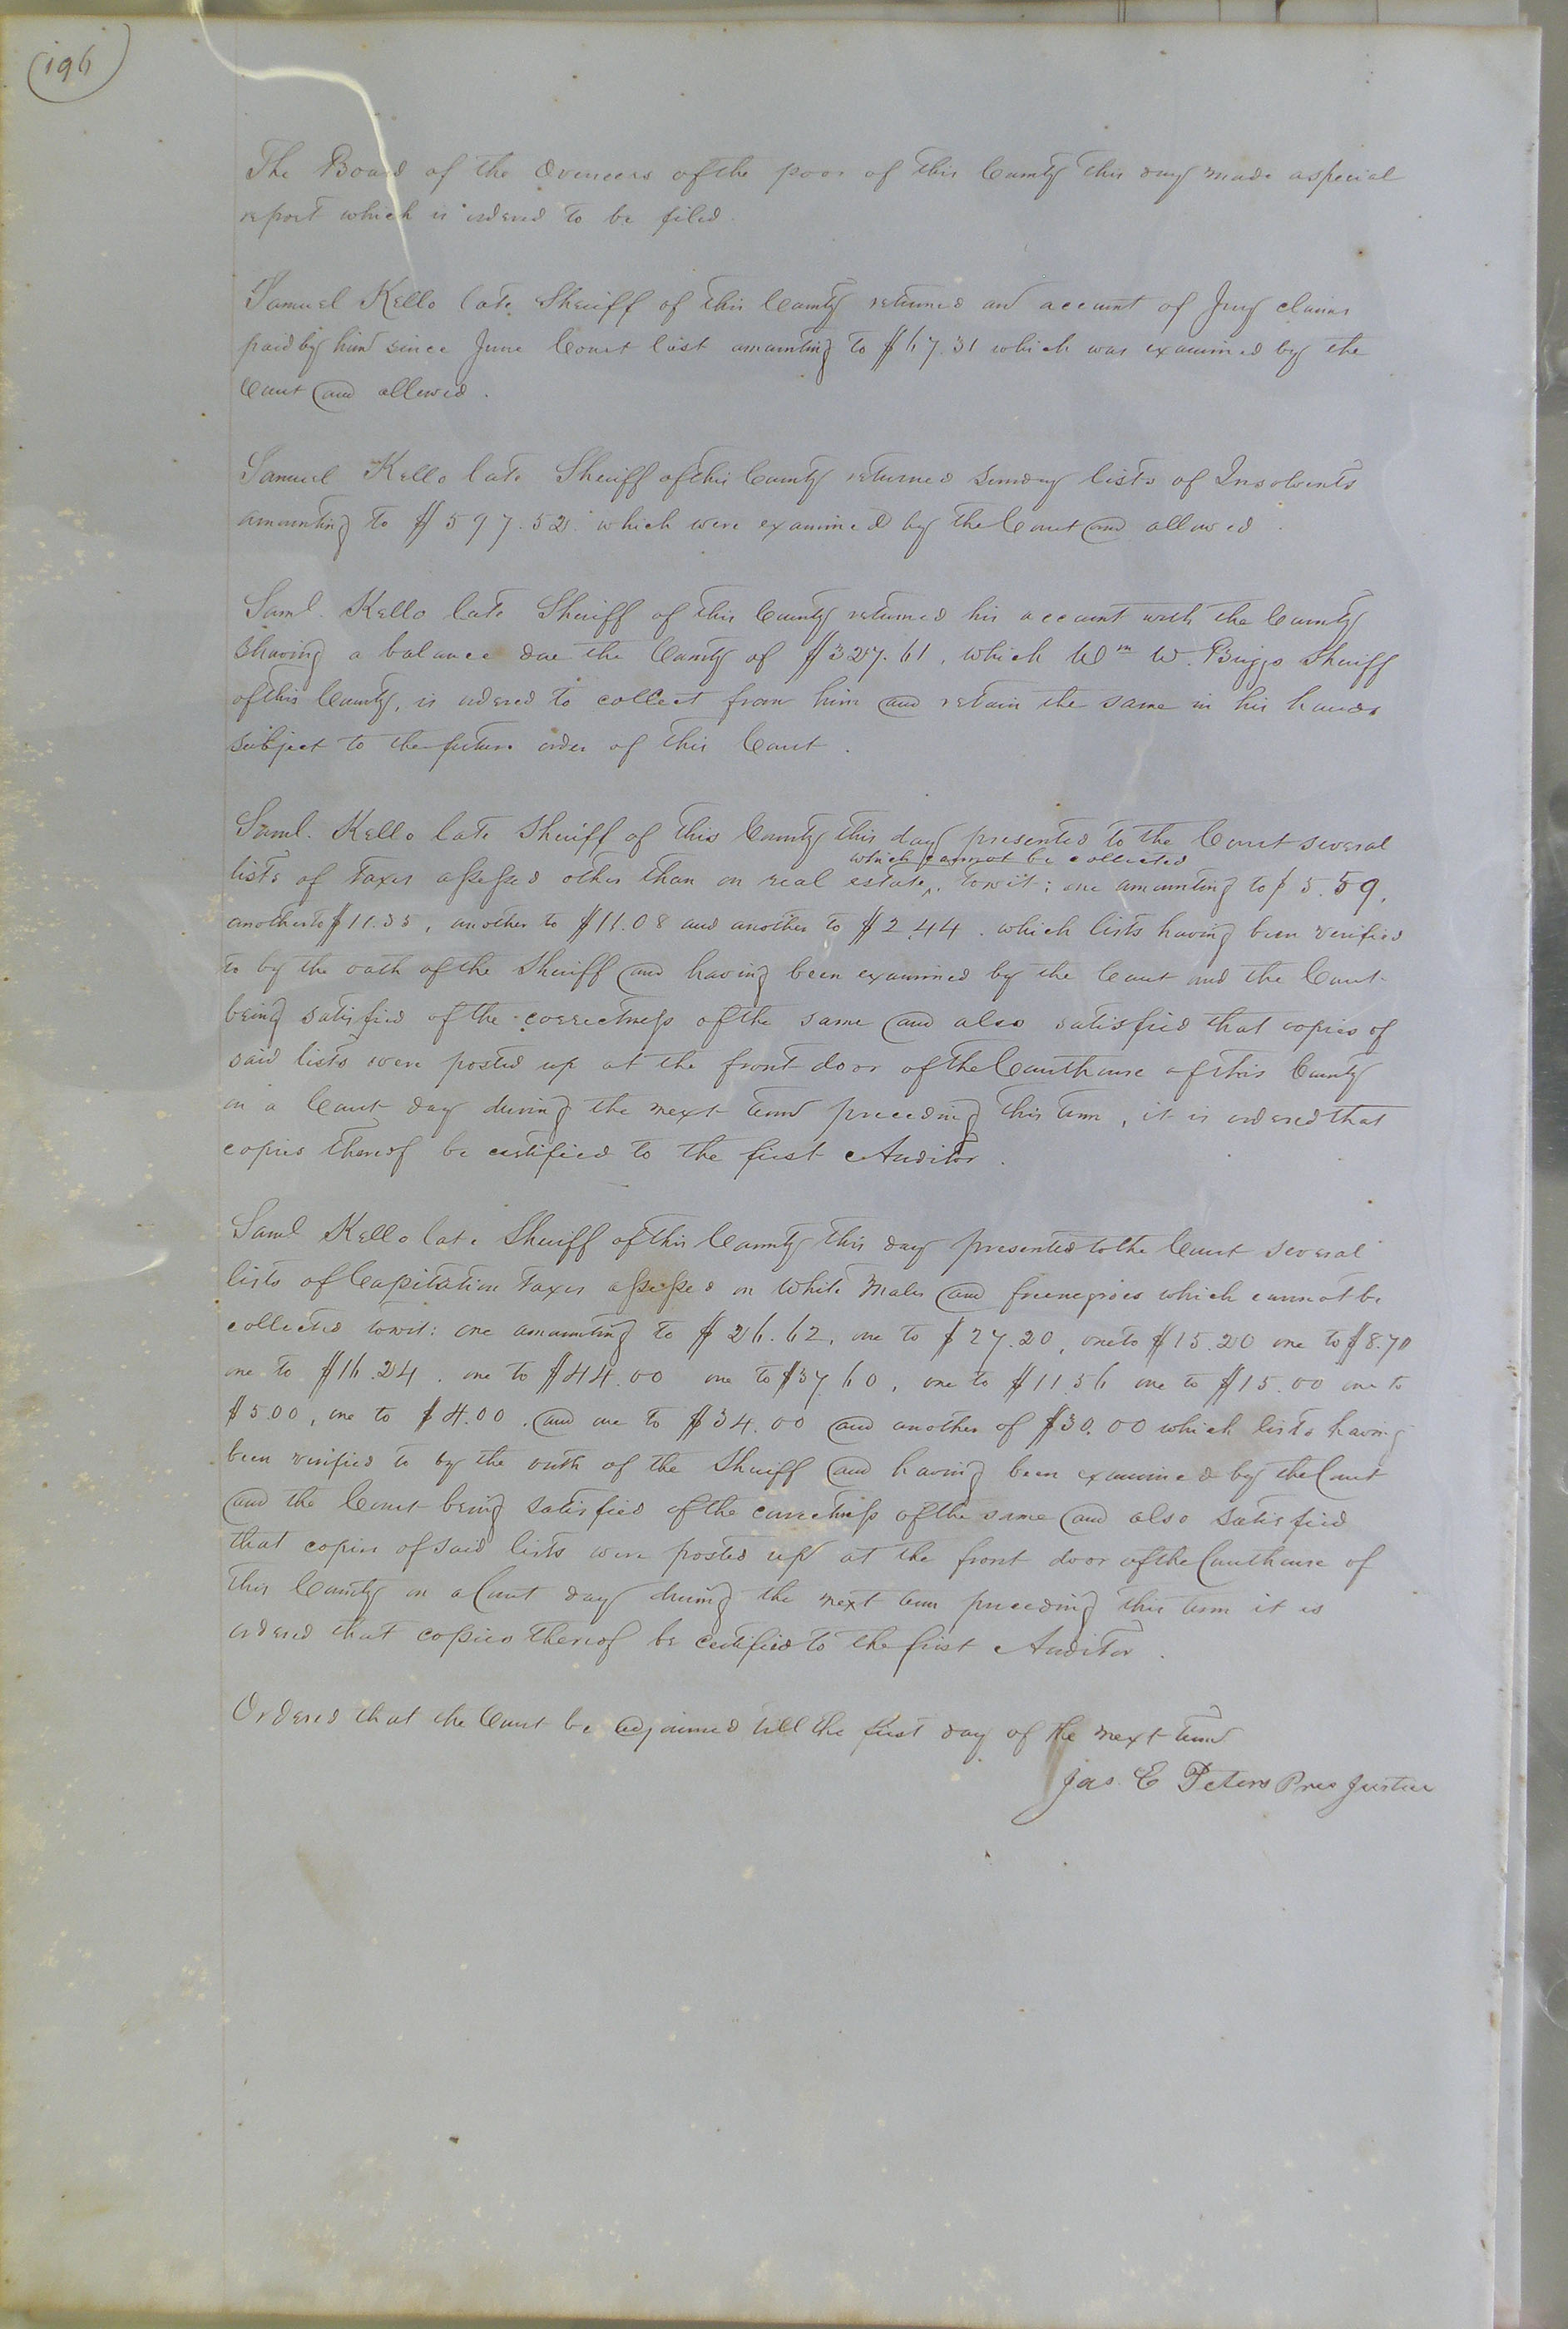 196
The Board of the Overseers of the poor of this County this day made a special
report which is ordered to be filed.
Samuel Kello late Sheriff of this County returned an account of Jury claims
paid by him since June Court last amounting to $67.31 which was examined by the
Court and allowed.
Samuel Kello late Sheriff of this County returned sundry lists of Insolvents
amounting to $597.52 which were examined by the Court and allowed.
Saml. Kello late Sheriff of this County returned his account with the County
Shewing a balance due the County of $327.61, which Wm W. Briggs Sheriff
of this County, is ordered to collect from him and retain the same in his hands
subject to the future order of this Court.
Saml. Kello late Sheriff of this County this day presented to the Court several
which cannot be collected
lists of taxes assessed other than on real estate, towit: one amounting to $5.59,
another to $11.35, another to $11.08 and another to $2.44. which lists having been verified
to by the oath of the Sheriff and having been examined by the Court and the Court
being satisfied of the correctness of the same and also satisfied that copies of
said lists were posted up at the front door of the Courthouse of this County
on a Court day during the next term preceeding this term, it is ordered that
copies thereof be certified to the first Auditor.
Saml Kello late Sheriff of this County this day presented to the Court several
lists of Capitation taxes assessed on White Males and free negroes which cannot be
collected towit: one amounting to $26.62, one to $27.20, one to $15.20 one to $8.70
one to $16.24. one to $44.00 one to $37.60, one to $11.56 one to $15.00 one to
$5.00, one to $4.00. and one to $34.00 and another of $30.00 which lists having
been verified to by the oath of the Sheriff and having been examined by the Court
and the Court being satisfied of the correctness of the same and also satisfied
that copies of said lists were posted up at the front door of the Courthouse of
this County on a Court day during the next term preceeding this term it is
ordered that copies thereof be certified to the first Auditor.
Ordered that the Court be adjourned till the first day of the next term
Jas. E Peters Pres Justice